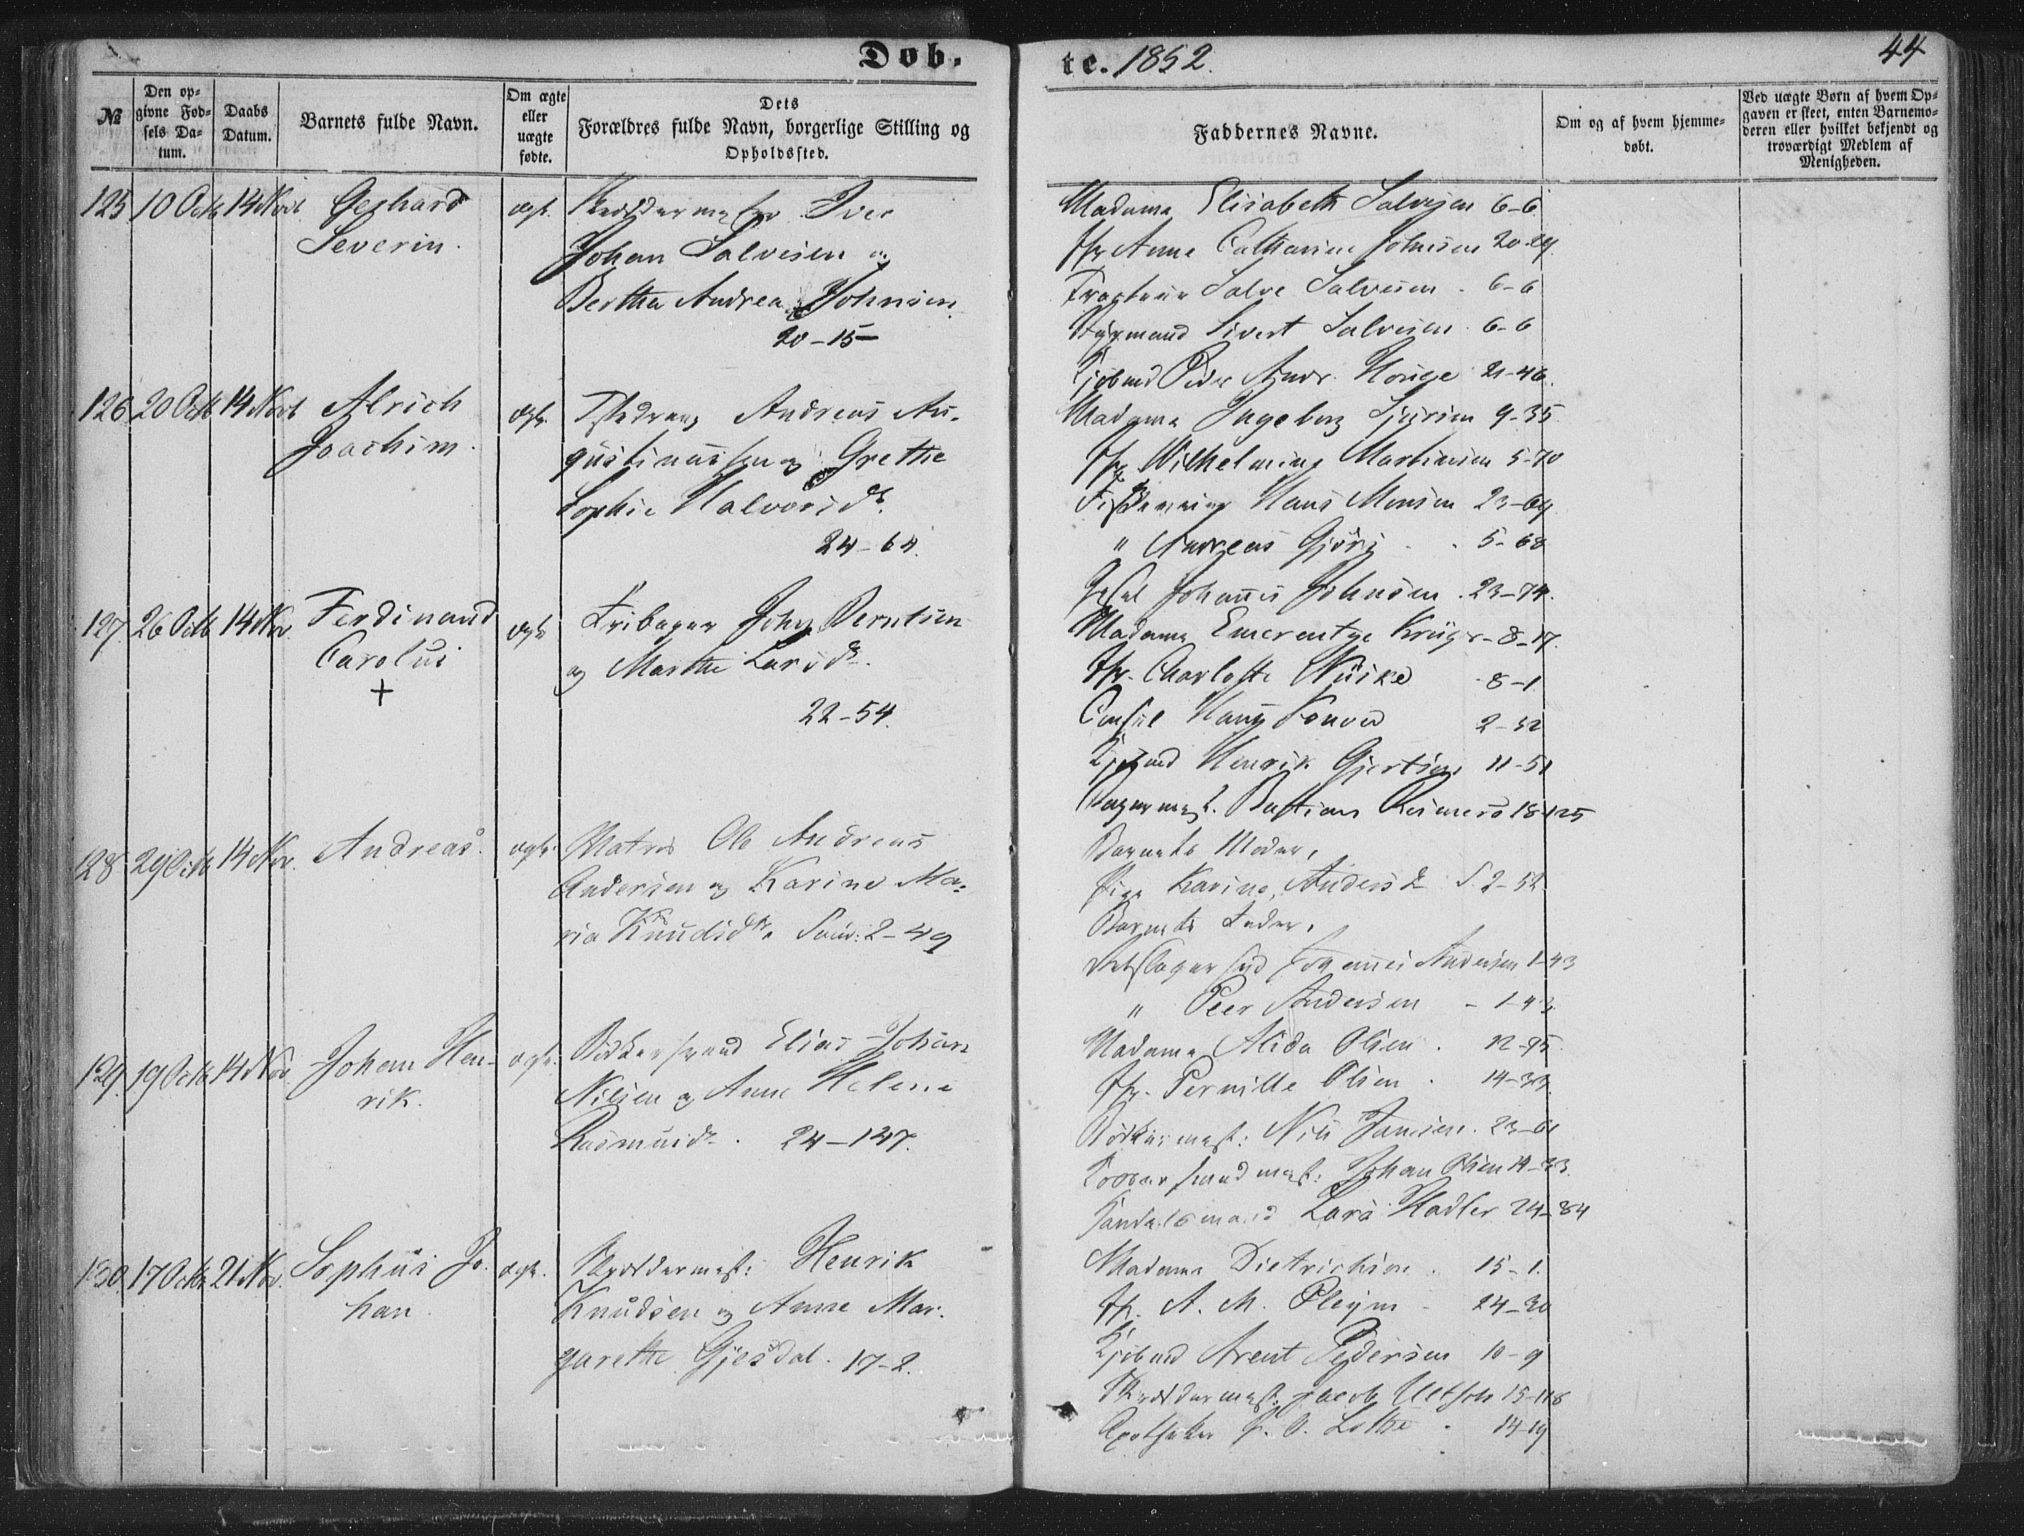 Døb.
te. 1852.
44
№
Den op-
givne Fød-
sels Da-
tum.
Daabs
Datum.
Barnets fulde Navn.
Om ægte
eller
uægte
fødte.
Dets
Forældres fulde Navn, borgerlige Stilling og
Opholdssted.
Faddernes Navne.
Om og af hvem hjemme-
døbt.
Ved uægte Børn af hvem Op-
gaven er skeet, enten Barnemo-
deren eller hvilket bekjendt og
troværdigt Medlem af
Menigheden.
125 10 Octb 14 Novb Gerhard
Severin.
ægt. Skræddermester Iver
Johan Salvesen og
Bertha Andrea Johnsen.
20-15
Madame Elisabeth Salvesen 6-6
Jfr Anne Catharine Johnsen 20-29
Salve Salvesen. 6-6
Styrmand Sivert Salvesen. 6-6
Kjøbmd Peder Andr. Houge 21-46.
126 20 Octb 14 Novb Alrich
Joachim.
ægt. Andreas Au-
gustinussen og Grethe
Sophie Halvorsdr.
24-64.
Madame Ingeborg 9-35.
Jfr Wilhelmine Martinsen 5-70
Hans Monsen 23-69
" Andreas Gjörg 5-68
Johannes Johnsen. 23-74.
127. 26 Octb 14 Nov. Ferdinand
Carolus
+
ægt. John Berntsen
og Marthe Larsdr.
22-54.
Madame Emerentze Krüger 8-17.
Jfr. Charlotte 8-1
Consul Konow 2-32
Kjøbmd Henrik Gjertsen 11-51
Bagermest. Bastian Reimers 18-125
128 29 Octb 14 Nov. Andreas.
ægt. Matros Ole Andreas
Andersen og Karine Ma-
ria Knudsdr. 2-49
Barnets Moder,
Pige Karine Andersdr 2-52
Barnets Fader,
Johannes Andersen 1-43
" Peer Andersen - 1-43
129. 19 Octb 14 Nov. Johan Hen-
rik.
ægt. Bödkersvend Elias Johan
Nilsen og Anne Helene
Rasmusdr. 24-147.
Madame Alida Olsen. 12-95.
Jfr. Pernille Olsen. 14-33.
Bödkermest: Nils Jansen. 23-61
Johan Olsen 14-33.
Handelsmand Lars Hadler 24-84
130. 17 Octb 21 Nov. Sophus Jo-
han.
ægt. Skræddermest: Henrik
Knudsen og Anne Mar-
garethe Gjesdal. 17-2.
Madame Dietrichson. 15-1.
Jfr. A. M. Pleym 24-30
Kjøbmd Arent Pedersen 10-9
Skræddermest. Jacob 15-118
Apotheker Lothe. 14-19